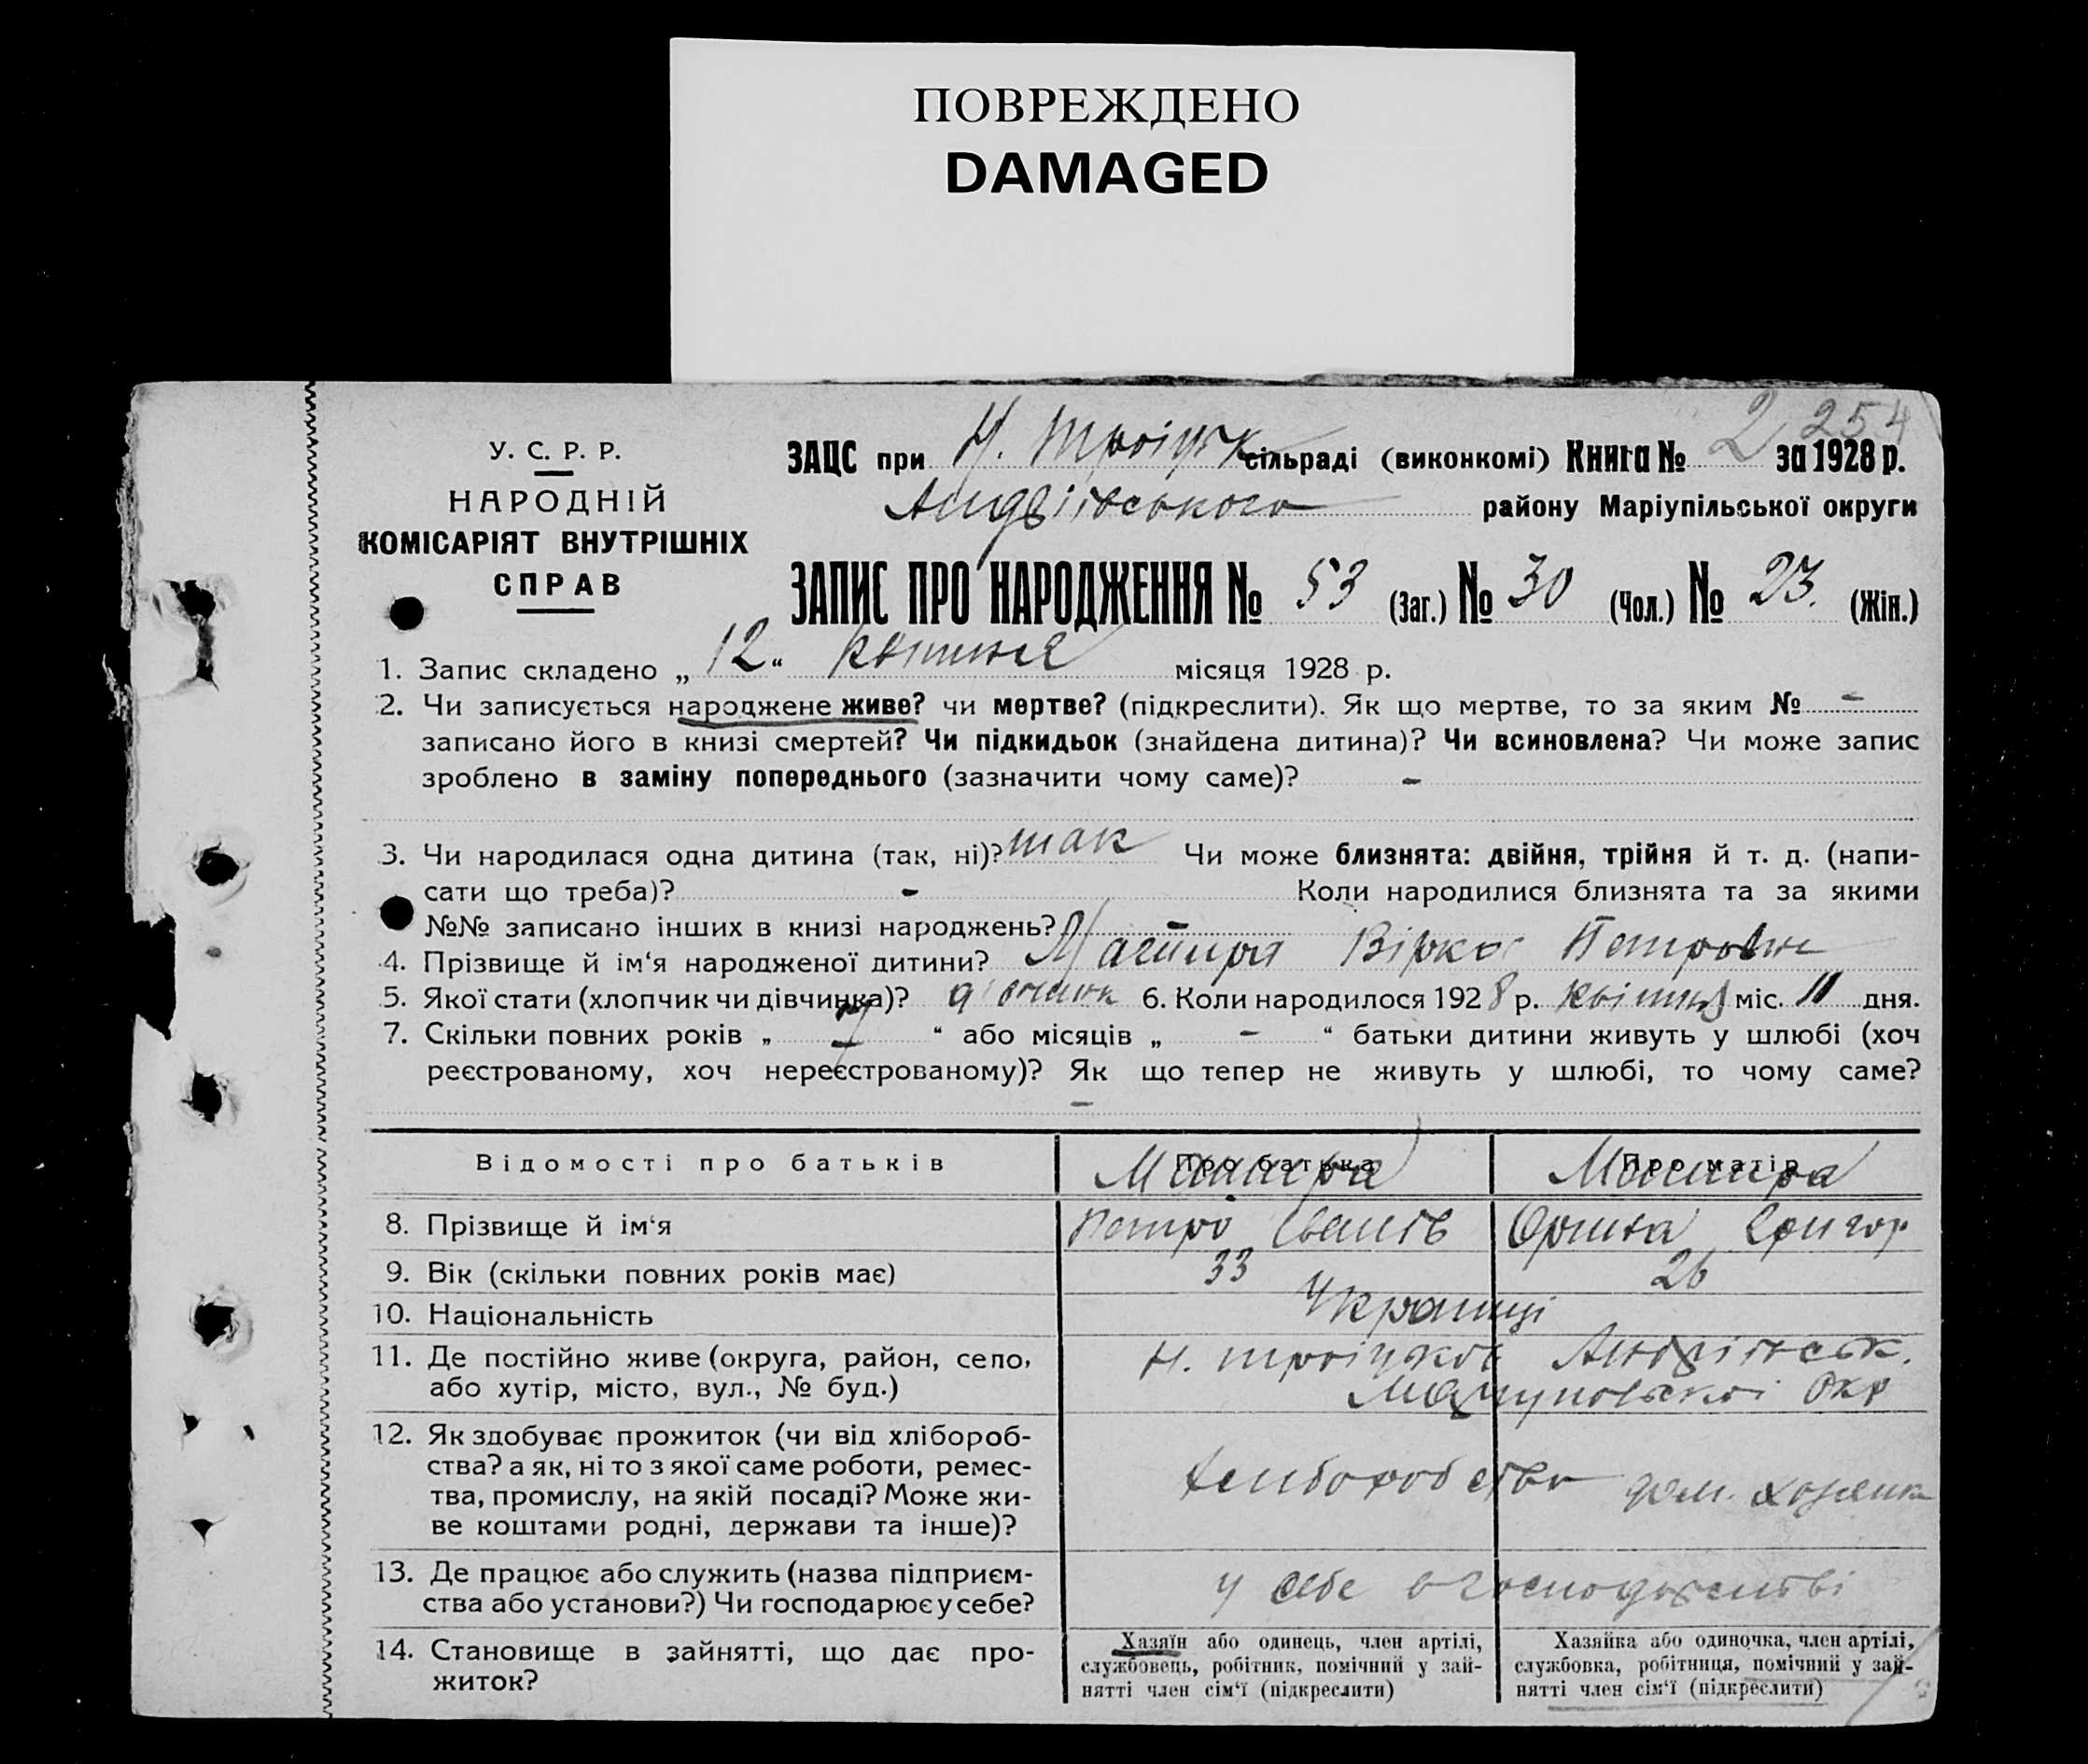 ПОВРЕЖДЕНО
DAMAGED
254
У. С. Р. Р.
НАРОДНІЙ
КОМІСАРІЯТ ВНУТРІШНІХ
СПРАВ
ЗАЦС при Н. Троіцьк сільраді (виконкомі) Книга № 2 за 1928 р.
району Маріупільської округи
ЗАПИС ПРО НАРОДЖЕННЯ № 53 (Заг.) № 30 (Чол.) № 23. (Жін.)
1. Запис складено „ 12 “ квітня місяця 1928 р.
2. Чи записується народжене живе? чи мертве? (підкреслити). Як що мертве, то за яким № -
записано його в книзі смертей? Чи підкидьок (знайдена дитина)? Чи всиновлена? Чи може запис
зроблено в заміну попереднього (зазначити чому саме)? -
3. Чи народилася одна дитина (так, ні)? так Чи може близнята: двійня, трійня й т. д. (напи-
сати що треба)? - Коли народилися близнята та за якими
№№ записано інших в книзі народжень? -
4. Прізвище й ім‘я народженої дитини? Вірка Петровн
5. Якої стати (хлопчик чи дівчинка)? дівчинк 6. Коли народилося 1928 р. квітня міс. 11 дня.
7. Скільки повних років „ 7 “ або місяців „ - “ батьки дитини живуть у шлюбі (хоч
реєстрованому, хоч нереєстрованому)? Як що тепер не живуть у шлюбі, то чому саме?
-
Відомості про батьків Про батька Про матір
8. Прізвище й ім‘я Петро Іванів Орина Григор
9. Вік (скільки повних років має) 33 26
10. Національність Українці
11. Де постійно живе (округа, район, село, Н. Троіцьке
або хутір, місто, вул., № буд.) Окр
12. Як здобуває прожиток (чи від хлібороб-
ства? а як, ні то з якої саме роботи, ремес-
тва, промислу, на якій посаді? Може жи-
ве коштами родні, держави та інше)?
хлиборобство дом. хозяйка
13. Де працює або служить (назва підприєм-
ства або установи?) Чи господарює у себе?
у себе в господарстві
14. Становище в зайнятті, що дає про-
житок?
Хазяїн або одинець, член артілі,
службовець, робітник, помічний у зай-
нятті член сім‘ї (підкреслити)
Хазяйка або одиночка, член артілі,
службовка, робітниця, помічний у зай-
нятті член сім‘ї (підкреслити)